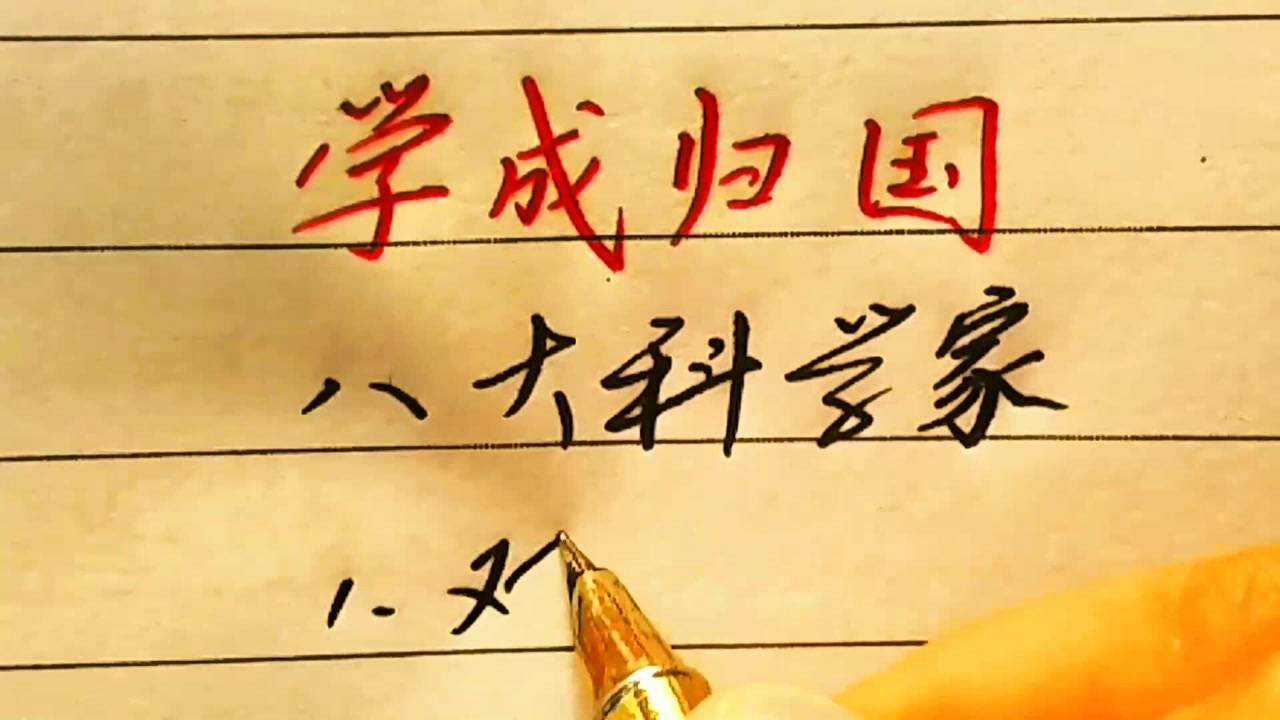 学成归国
八大科学家
1.